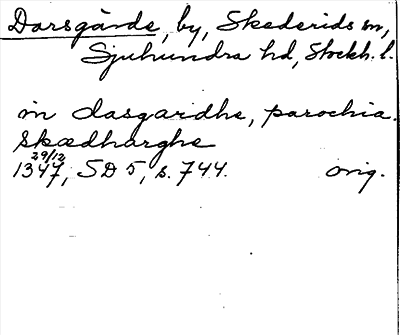 Darsgärde, by, Skederids sn,
Sjuhundra hd, Stockh. l.
in dasgardhe, parochia.
skædharghe
29/12
1347, SD 5, s. 744. orig.